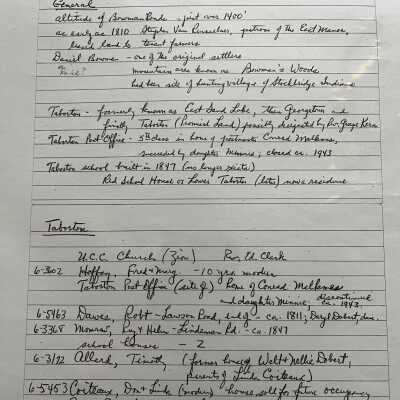 General
altitude of Bowman Ponds - just over 1400'
as early as 1810 Stephen Van Rensselaer, patroon of the East Manor,
leased land to tenant farmers
Daniel Bowman - one of the original settlers
or
mountain area known as Bowman's Woods
had been site of hunting village of Stockbridge Indians
Taborton - formerly known as East Sand Lake, then Georgetown and
finally Taborton (Promised Land) possibly designated by Rev. George
Taborton Post Office - 5th class in home of postmaster Conrad
succeeded by daughter Minnie; closed ca. 1943
Taborton school built in 1847 (no longer exists)
Red School House or Lower Taborton (late) now a residence
Taborton
U.C.C. Church (Zion) Rev. Ed. Clark
6-3602 Fred & Mary - 10 yr. modern
Taborton Post Office (site of) home of Conrad
and daughter Minnie, discontinued
ca. 1943
6-5463 Davis, Robt - Lawson Road, end of - ca. 1811; Daryl Dobert,
6-3368 Roy & Helen - Lindeman Rd. - ca. 1847
school house - 2
6-3172 Allard, Timothy (former house of Walt & Nellie Dobert,
parents of Linda Coiteaux)
6-5453 Coiteaux, Don & Linda (modern) house, sold for future occupancy